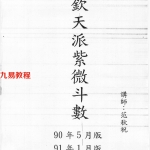 欽天派紫微斗數
講師：范秋桄
90年5月版
91年1月版
九易教程